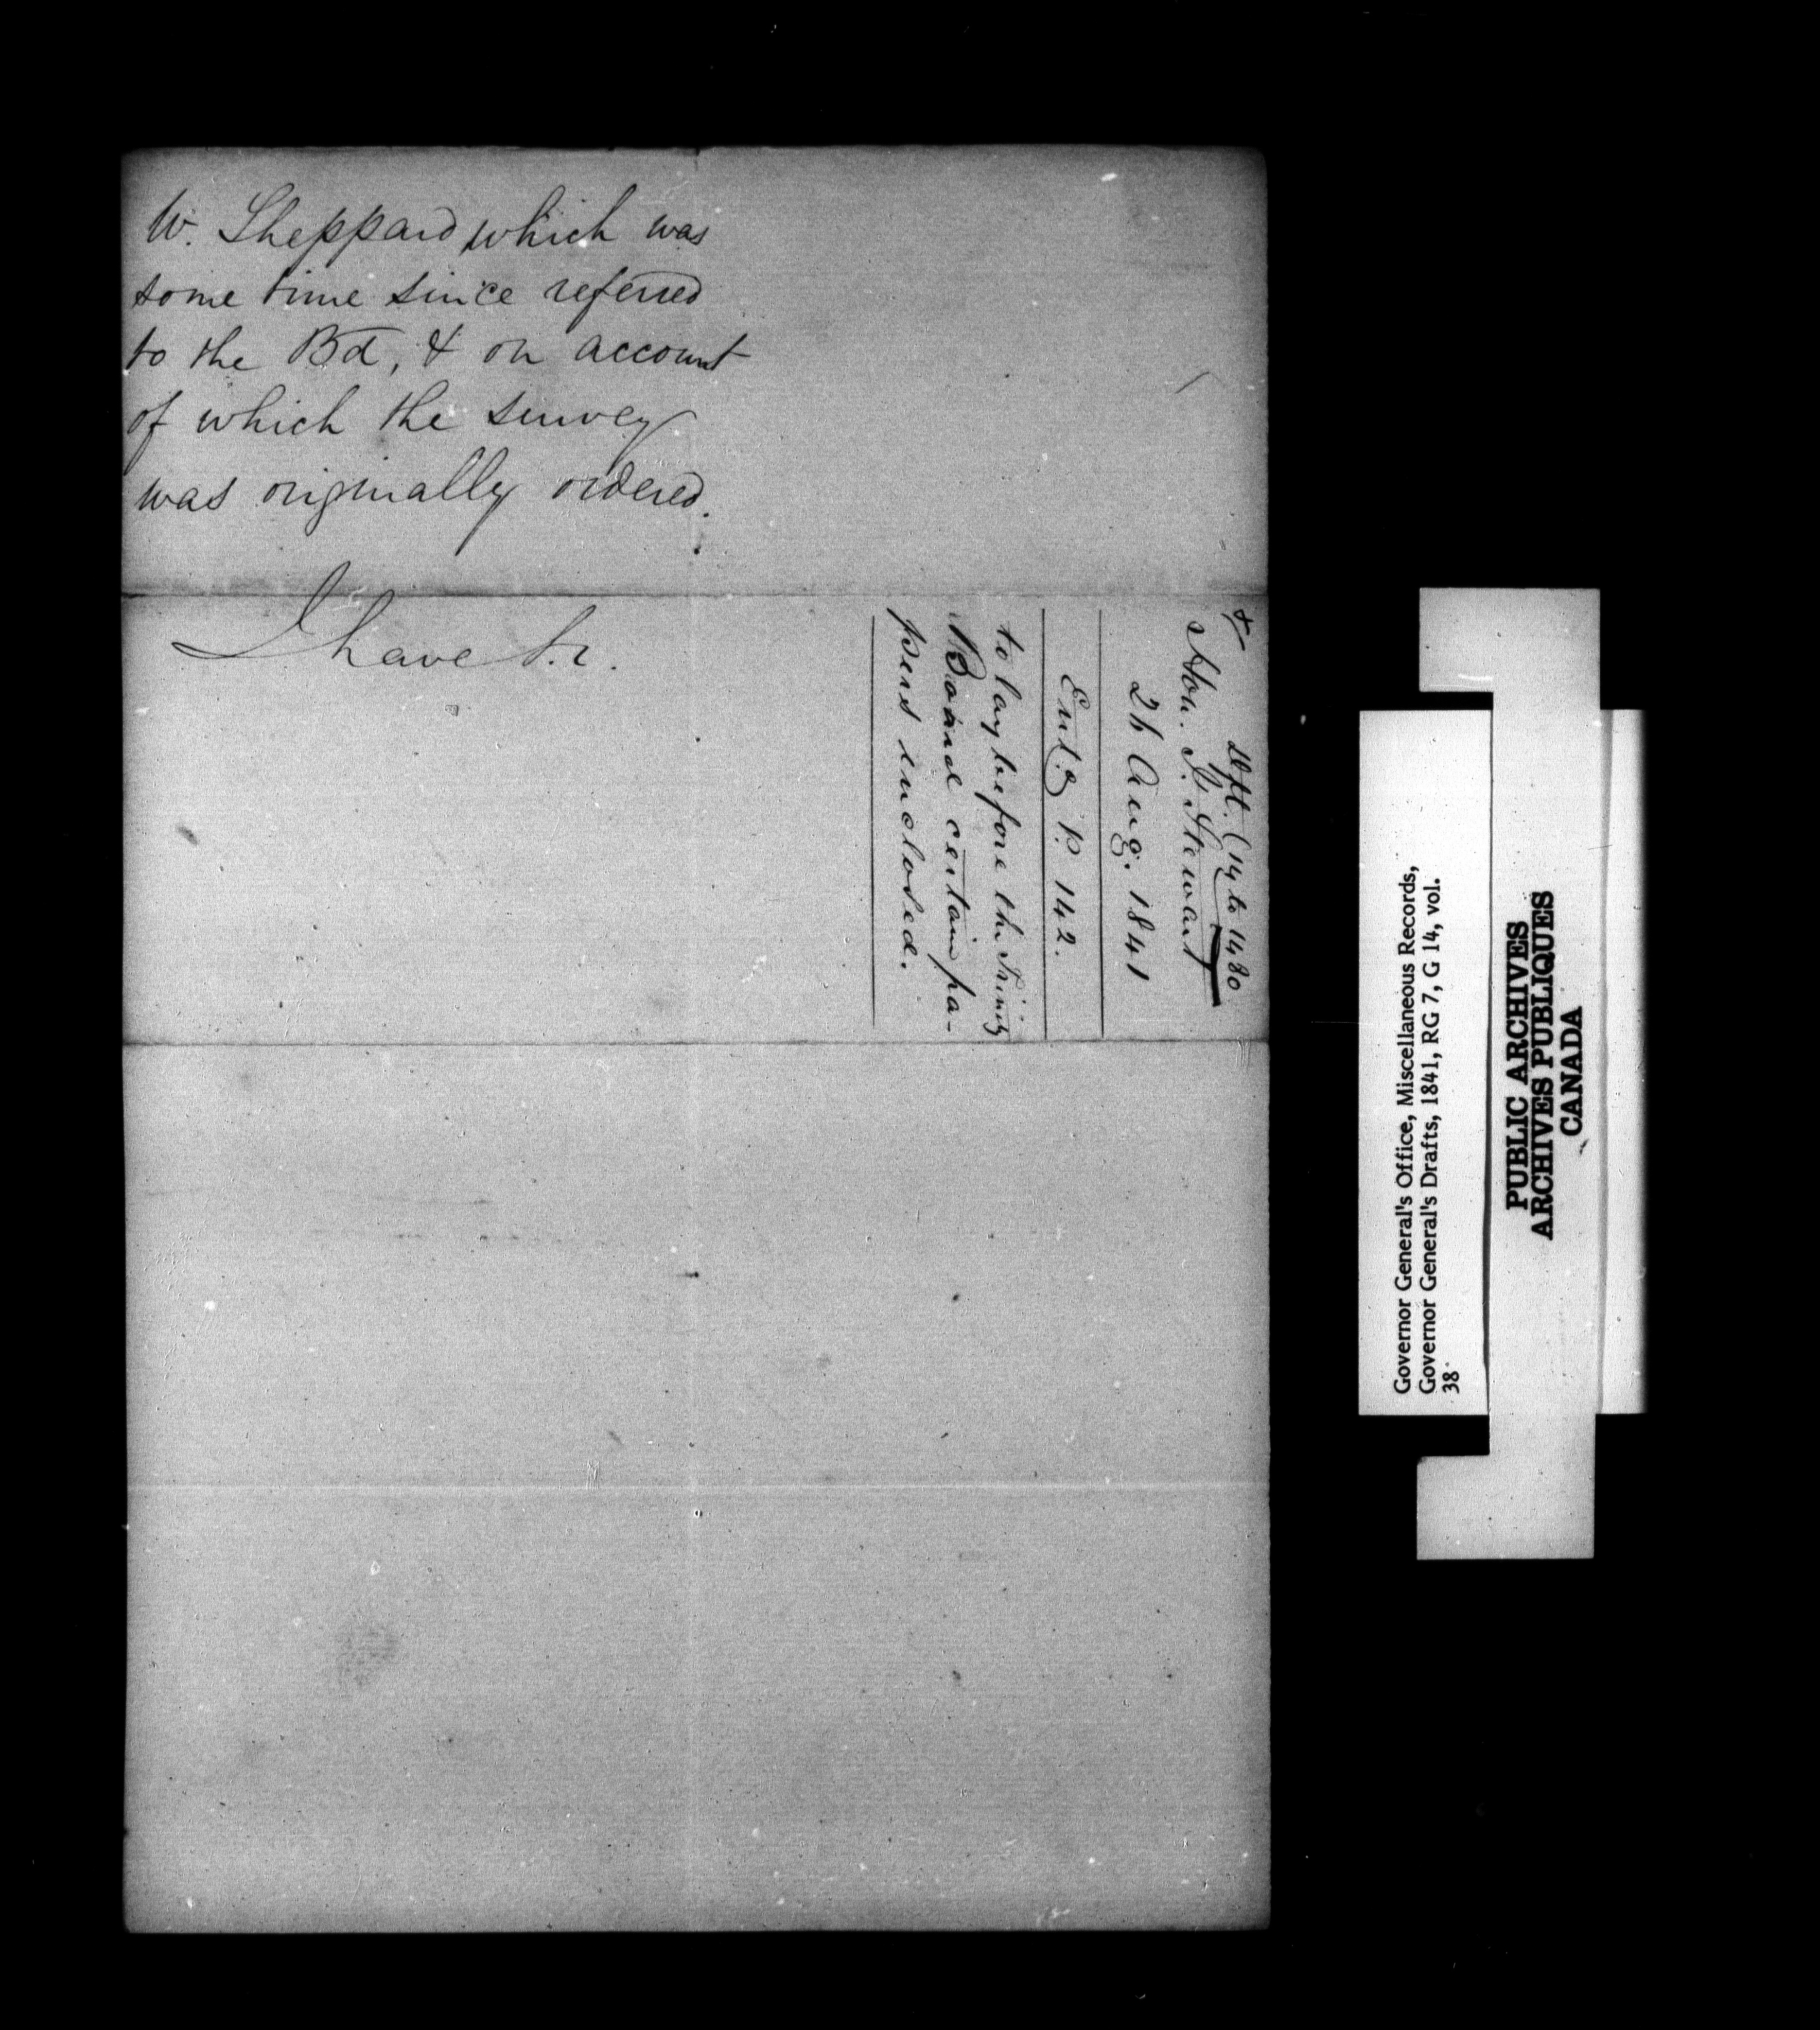 W. Sheppard, which was
some time since referred
to the Bd, & on account
of which the survey
was originally ordered.
I have &c.
Dft. (14 to 1480
Hon. J. Stewart
26 Aug. 1841
Entg P. 142.
to lay before the Trinity
Board certain pa-
pers enclosed.
Governor General's Office, Miscellaneous Records,
Governor General's Drafts, 1841, RG 7, G 14, vol.
38
PUBLIC ARCHIVES
ARCHIVES PUBLIQUES
CANADA